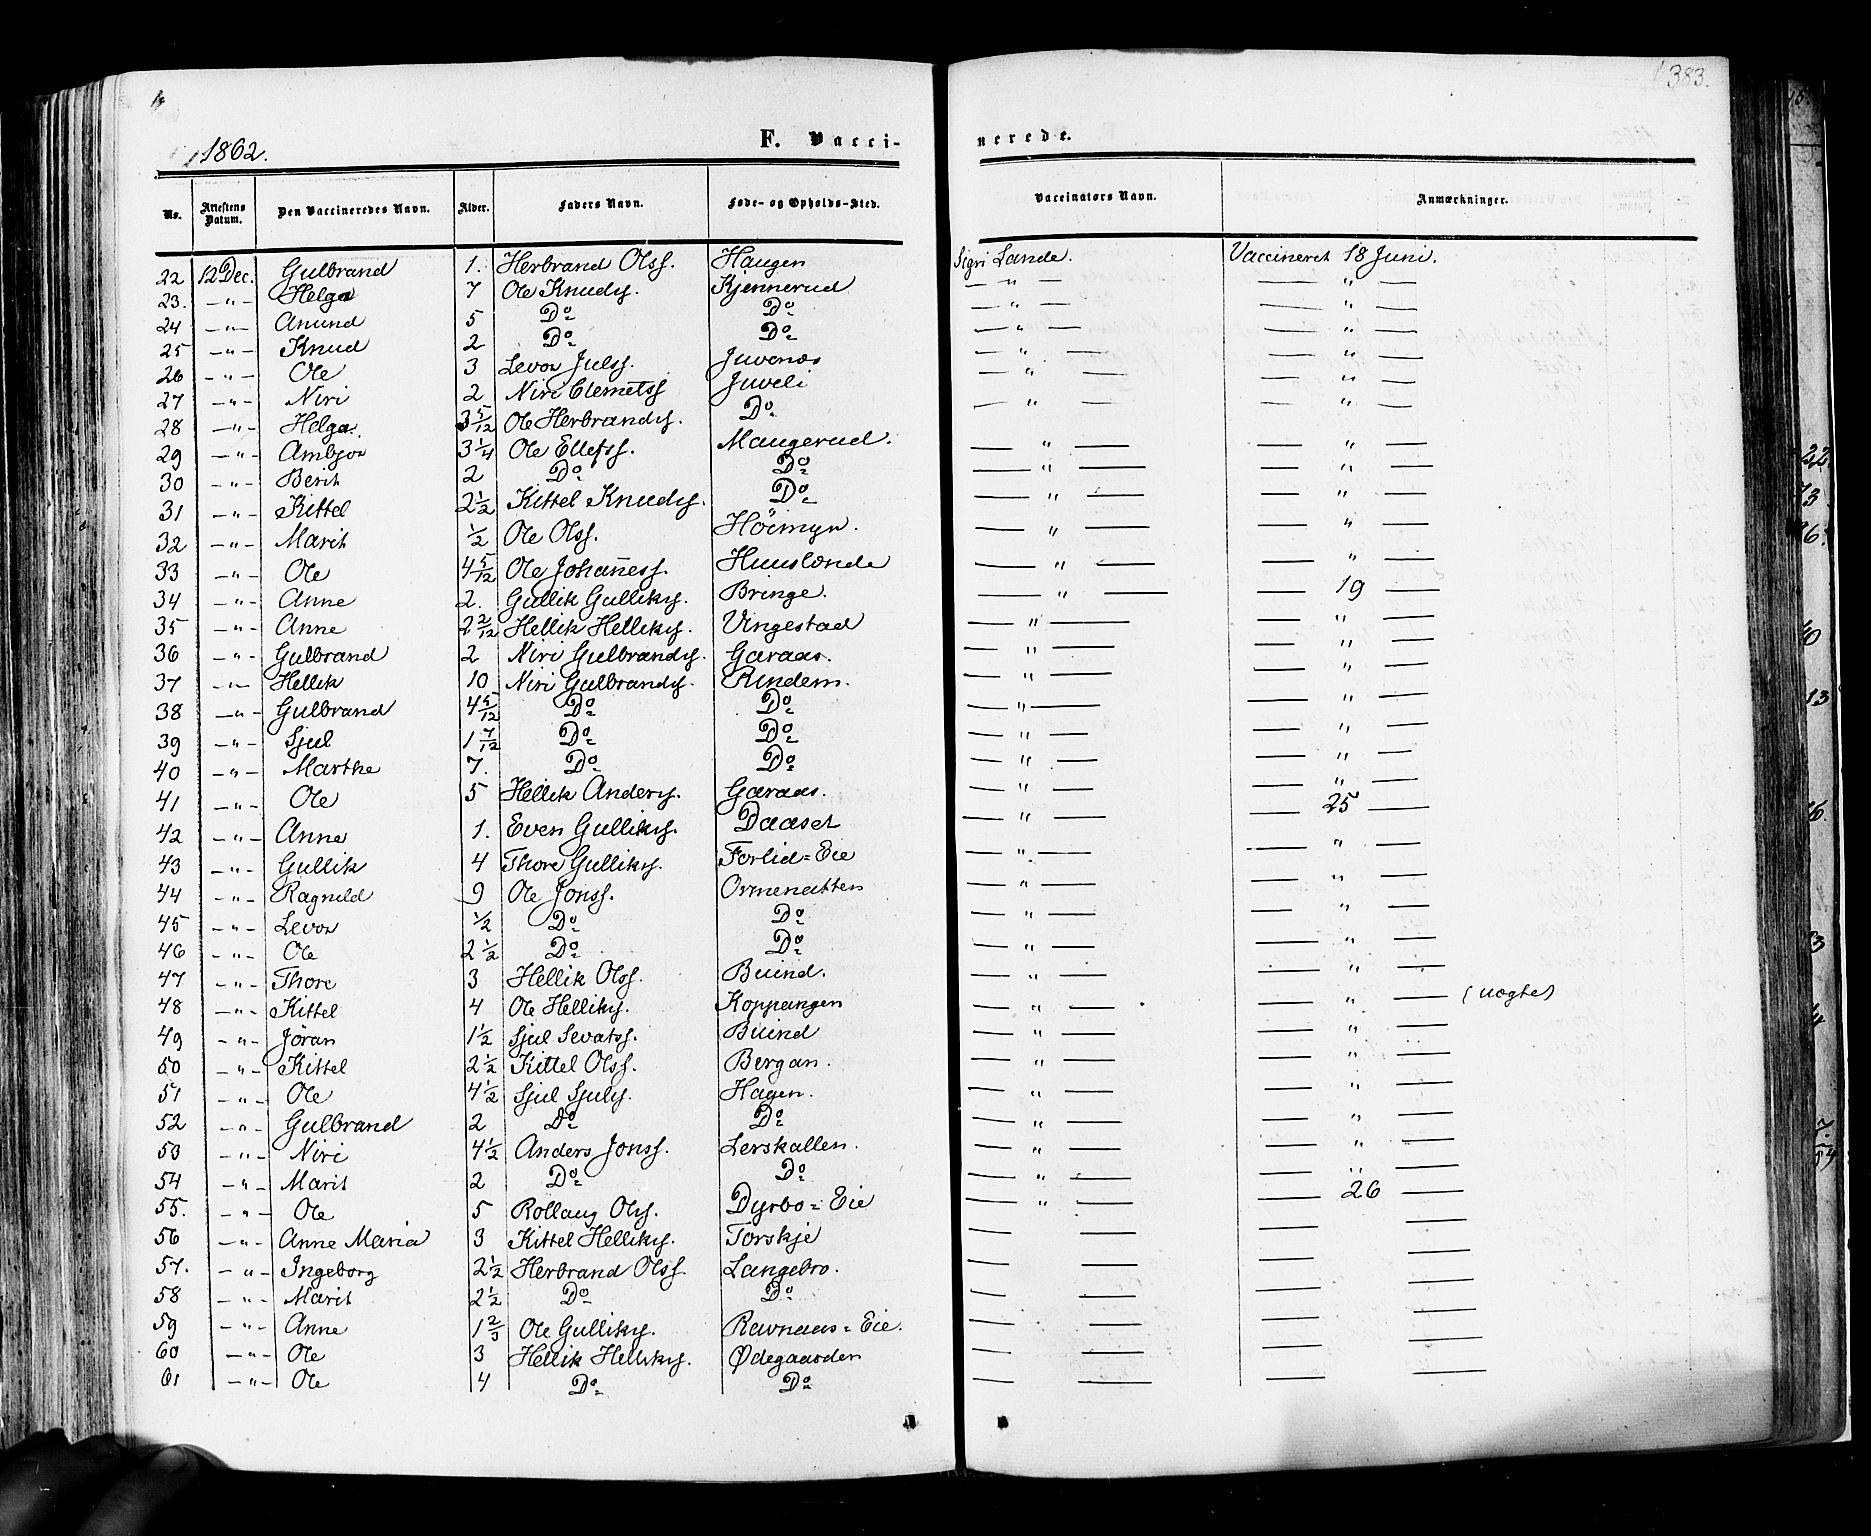 383.
1862.
F. Vacci-
nerede.
No. Attestens Datum. Den Vaccineredes Navn. Alder. Faders Navn. Føde- og Opholds-Sted. Vaccinators Navn. Anmærkninger.
22 12 Dec. Gulbrand 1. Herbrand Olss. Haugen Sigri Lande. Vaccineret 18 Juni.
23. —"— Helga 7 Ole Knuds. Kjennerud — " — — " —
24 —"— Anund 5 Do Do — " — — " —
25 —"— Knud 2 Do Do — " — — " —
26 —"— Ole 3 Levor Julss. Juvenæs — " — — " —
27 —"— Niri 2 Niri Clemetss Juveli — " — — " —
28 —"— Helga. 3 5/12 Ole Herbrands. Do — " — — " —
29 —"— Ambjør 3 1/4 Ole Ellefss. Maugerud. — " — — " —
30 —"— Berit 2 Do Do — " — — " —
31 —"— Kittel 2 1/2 Kittel Knuds. Do — " — — " —
32 —"— Marit 1/2 Ole Olss. Höimyr. — " — — " —
33 —"— Ole 4 5/12 Ole Johañess. Huuslænde — " — — " —
34 —"— Anne 2. Gullik Gulliks. Bringe. — " — — 19 —
35 —"— Anne 2 2/12 Hellik Helliks. Vingestad — " — — " —
36 —"— Gulbrand 2 Niri Gulbrands. Garaas. — " — — " —
37 —"— Hellik 10 Niri Gulbrands. Rindem. — " — — " —
38 —"— Gulbrand 4 5/12 Do Do — " — — " —
39 —"— Sjul 1 7/12 Do Do — " — — " —
40 —"— Marthe 7. Do Do — " — — " —
41 —"— Ole 5 Hellik Anders. Garaas. — " — — " —
42 —"— Anne 1. Even Gulliks. Daaset — " — — 25 —
43 —"— Gullik 4 Thore Gulliks. Forlid=Eie — " — — " —
44 —"— Ragnild 9 Ole Jonss. Ormenatten — " — — " —
45 —"— Levor 1/2 Do Do — " — — " —
46 —"— Ole 2 1/2 Do Do — " — — " —
47 —"— Thore 3 Hellik Olss. Buind. — " — — " —
48 —"— Kittel 4 Ole Helliks. Koppangen — " — — " — (uægte)
49 —"— Jöran 1 1/2 Sjul Sevatss. Buind — " — — " —
50 —"— Kittel 2 1/2 Kittel Olss. Bergan. — " — — " —
51 —"— Ole 4 1/2 Sjul Sjuls. Hagen. — " — — " —
52 —"— Gulbrand 2 Do Do — " — — " —
53 —"— Niri 4 1/2 Anders Jonss. Lerskallen. — " — — " —
54 —"— Marit 2 Do Do — " — — " —
55. —"— Ole 5 Rollaug Ols. Dyrbo=Eie — " — — 26 —
56 —"— Anne Maria 3 Kittel Helliks. Torskje — — — —
57. —"— Ingeborg 2 1/2 Herbrand Olss. Langebro. — — — —
58 —"— Marit 2 1/2 Do Do — — — —
59 —"— Anne 1 2/3 Ole Gulliks. Ravnaas=Eie. — — — —
60 —"— Ole 3 Hellik Helliks. Ødegaarden — — — —
61 —"— Ole 4 Do Do — — — —